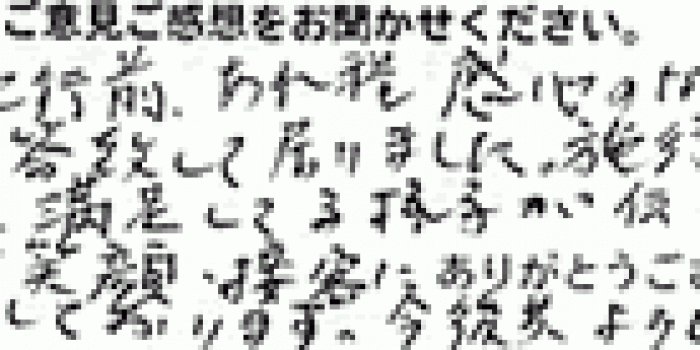 ご意見ご感想をお聞かせください。
行前、あれ程 感心
答致して居りました。施
満足してる様子が伝
笑顔 接客に ありがとうござ
して参ります。今後共 より